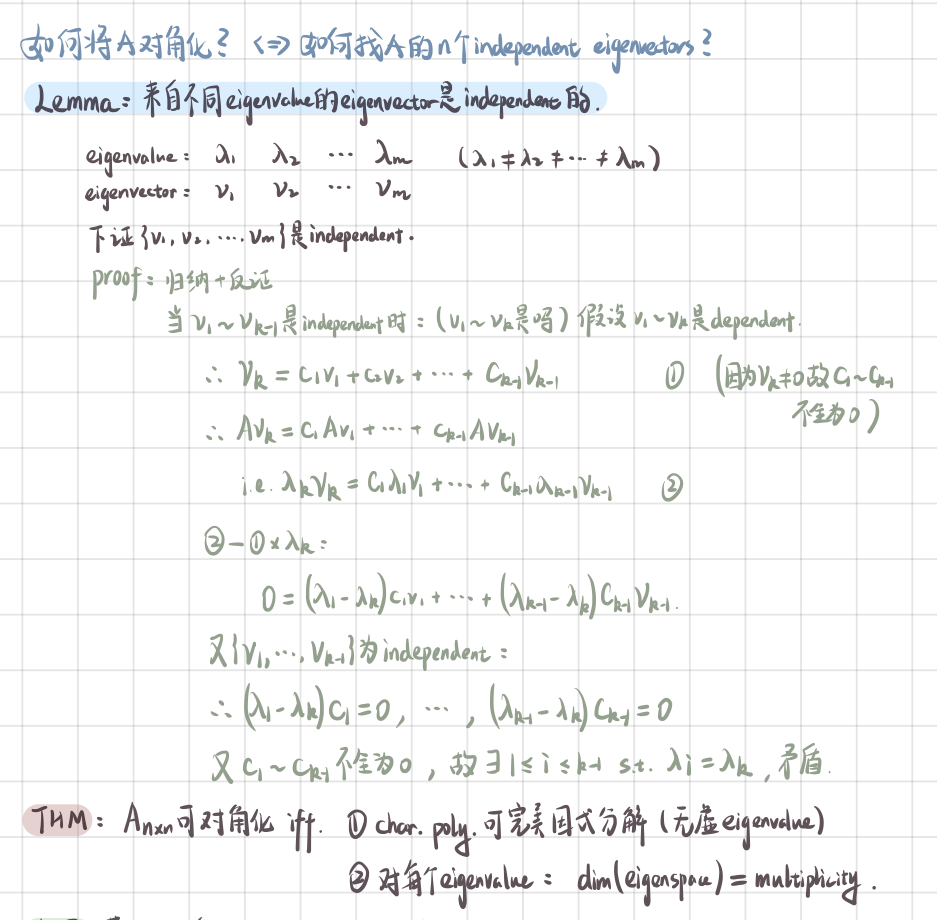 如何将A对角化? <=> 如何找A的n个independent eigenvectors?
Lemma: 来自不同eigenvalue的eigenvector是independent的.
eigenvalue: λ₁ λ₂ ⋯ λₘ (λ₁≠λ₂≠⋯≠λₘ)
eigenvector: v₁ v₂ ⋯ vₘ
下证{v₁, v₂, ⋯, vₘ}是independent.
proof: 归纳+反证
当v₁~vₖ₋₁是independent时: (v₁~vₖ是吗) 假设v₁~vₖ是dependent.
∴ vₖ = c₁v₁ + c₂v₂ + ⋯ + cₖ₋₁vₖ₋₁ ① (因为vₖ≠0故c₁~cₖ₋₁
不全为0)
∴ Avₖ = c₁Av₁ + ⋯ + cₖ₋₁Avₖ₋₁
i.e. λₖvₖ = c₁λ₁v₁ + ⋯ + cₖ₋₁λₖ₋₁vₖ₋₁ ②
②-①×λₖ:
0 = (λ₁-λₖ)c₁v₁ + ⋯ + (λₖ₋₁-λₖ)cₖ₋₁vₖ₋₁.
又{v₁, ⋯, vₖ₋₁}为independent:
∴ (λ₁-λₖ)c₁=0, ⋯, (λₖ₋₁-λₖ)cₖ₋₁=0
又c₁~cₖ₋₁不全为0, 故∃1≤i≤k-1 s.t. λᵢ=λₖ, 矛盾.
THM: Aₙₓₙ可对角化 iff. ① char. poly. 可完美因式分解 (无虚eigenvalue)
② 对每个eigenvalue: dim(eigenspace) = multiplicity.